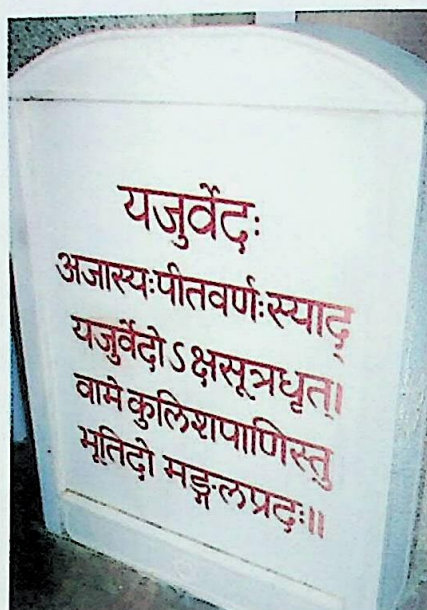 यजुर्वेदः
अजास्यःपीतवर्णःस्याद्
यजुर्वेदोऽक्षसूत्रधृत्।
वामे कुलिशपाणिस्तु
भूतिदो मङ्गलप्रदः॥